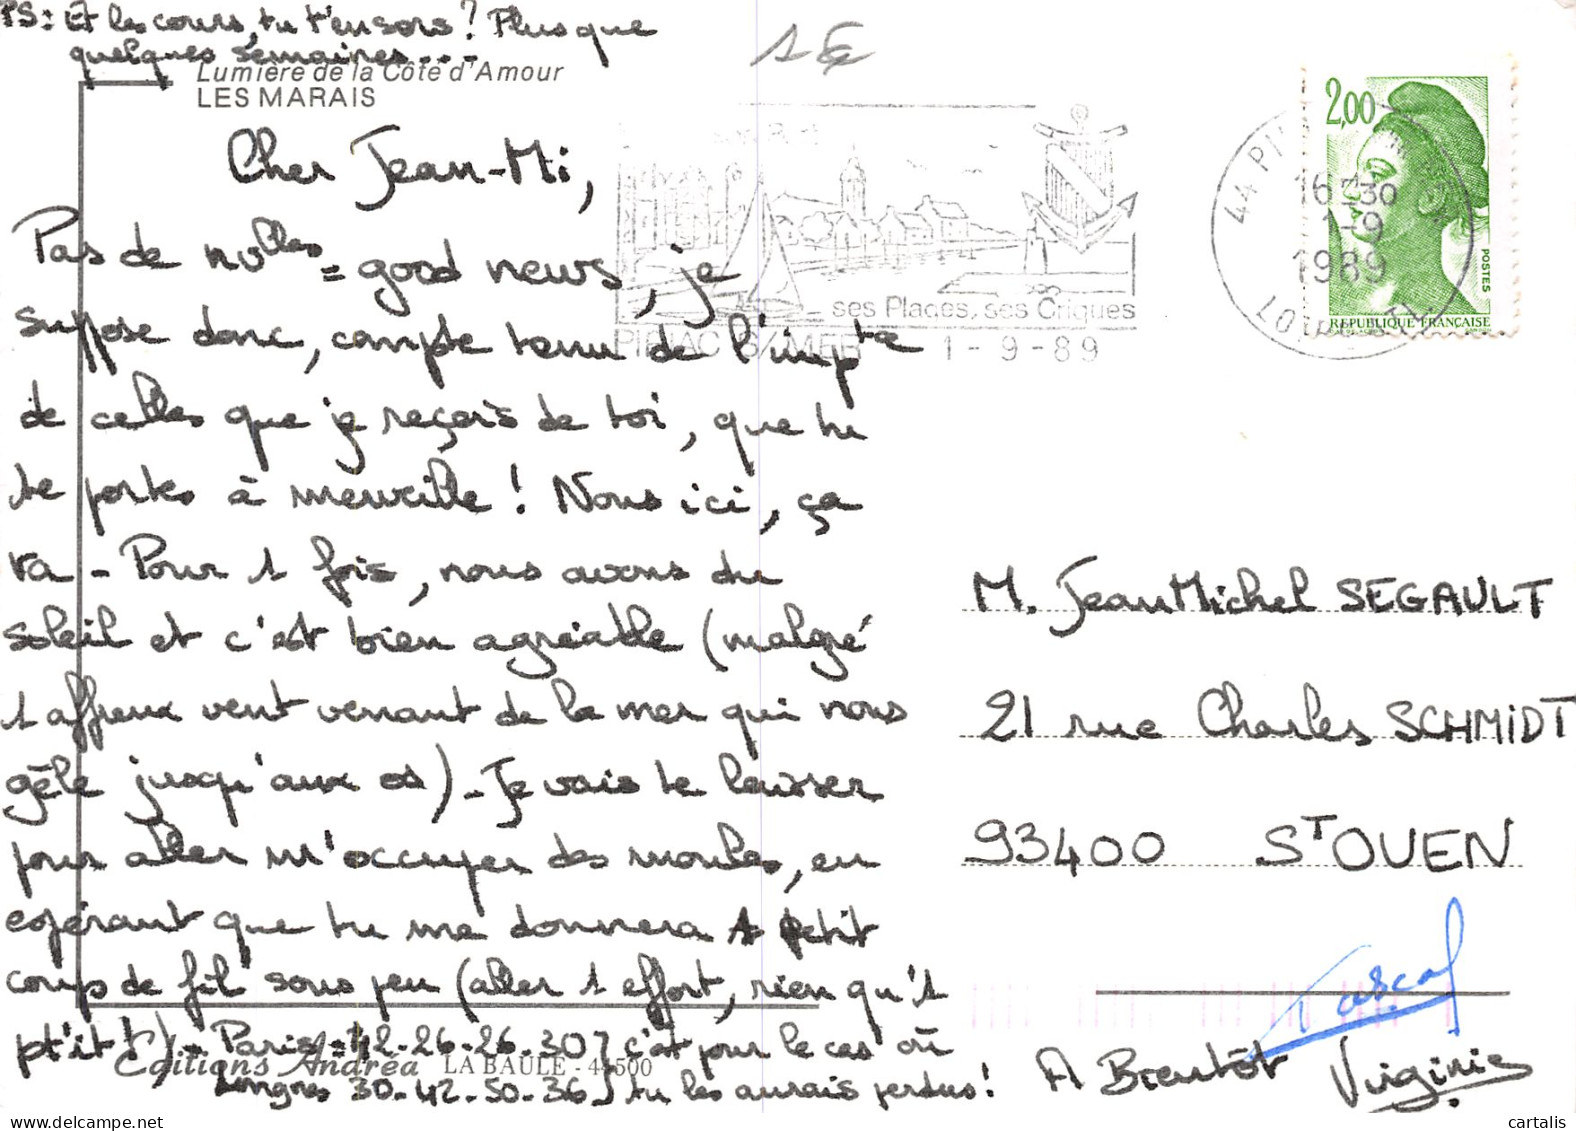 PS: Et les cours, tu t'en sors? Plus que
quelques semaines...
Lumière de la Côte d'Amour
LES MARAIS
1 €
Cher Jean-Mi,
Pas de nvlles = good news, je
suppose donc, compte tenu de l'impte
de celles que je reçois de toi, que tu
te portes à merveille! Nous ici, ça
va - Pour 1 fois, nous avons du
soleil et c'est bien agréable (malgré
1 affreux vent venant de la mer qui nous
gèle jusqu'aux os) - Je vais te laisser
pour aller m'occuper des moules, en
espérant que tu me donnera 1 petit
coups de fil sous peu (aller 1 effort, rien qu'1
pt'it!) - Paris: 42-26-26-30 } c'est pour le cas où
Longnes 30-42-50-36 } tu les aurais perdus!
Editions Andréa LA BAULE - 44500
ses Plages, ses Criques
PIRIAC S/MER 1-9-89
44 PI
16 H 30
1-9
1989
LOIRE
2,00
POSTES
REPUBLIQUE FRANÇAISE
M. Jean Michel SEGAULT
21 rue Charles SCHMIDT
93400 ST OUEN
Pascal
A Bientôt Virginie
cartalis